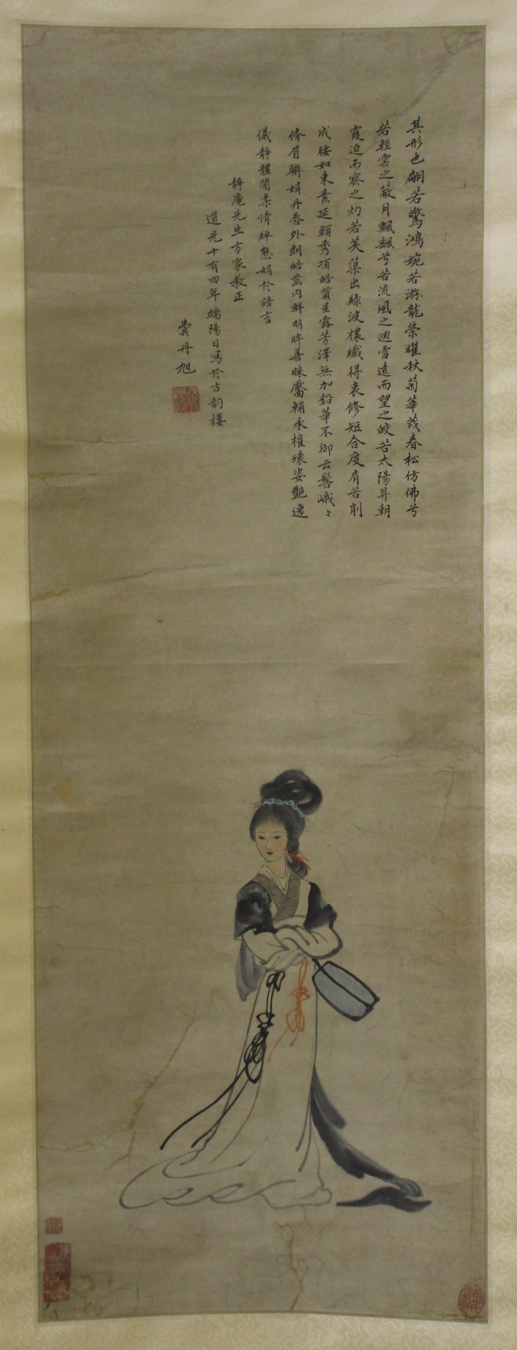 其形也翩若驚鴻婉若游龍榮曜秋菊華茂春松仿佛兮
若輕雲之蔽月飄飖兮若流風之迴雪遠而望之皎若太陽昇朝
霞迫而察之灼若芙蕖出綠波穠纖得衷修短合度肩若削
成腰如束素延頸秀項皓質呈露芳澤無加鉛華不御云髻峨々
脩眉聯娟丹唇外朗皓齒內鮮明眸善睞靨輔承權瓌姿艷逸
儀靜體閑柔情綽態媚於語言
靜庵先生方家教正
道光十有四年端陽日寫於古韵樓
費丹旭